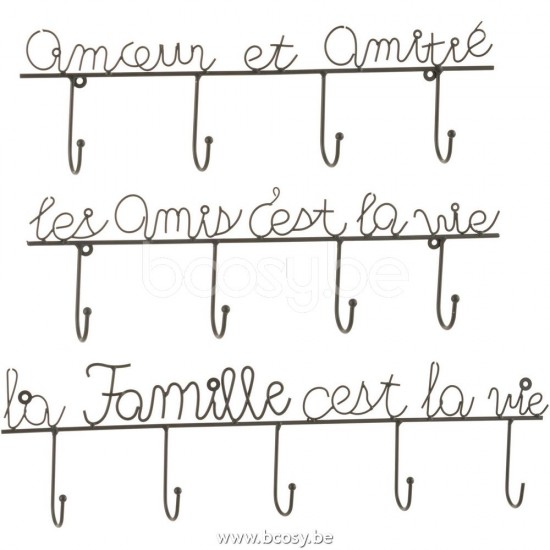 amœur et amitié
les amis c'est la vie
bcosy.be
la Famille c'est la vie
www.bcosy.be